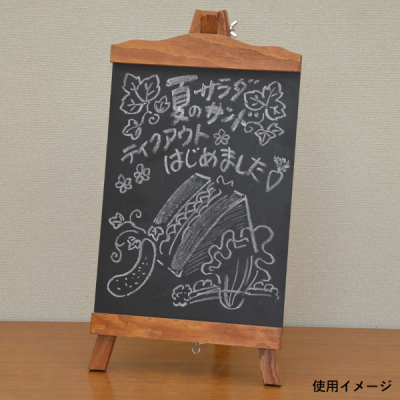 夏のサラダ
サンド
テイクアウト
はじめました
使用イメージ